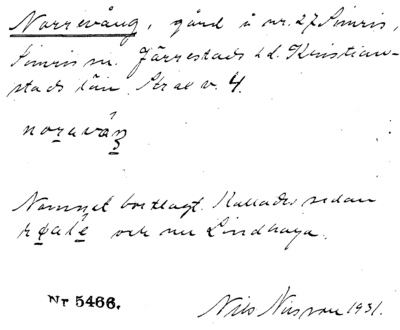 Norrevång, gård å nr. 27 Simris,
Simris sn. Järrestads hd. Kristian-
stads län. Skae v. 4.
noraváŋ
Namnet bortlagt. Kallades sedan
och nu Lindhaga.
Nr 5466.
Nils Nilsson 1931.